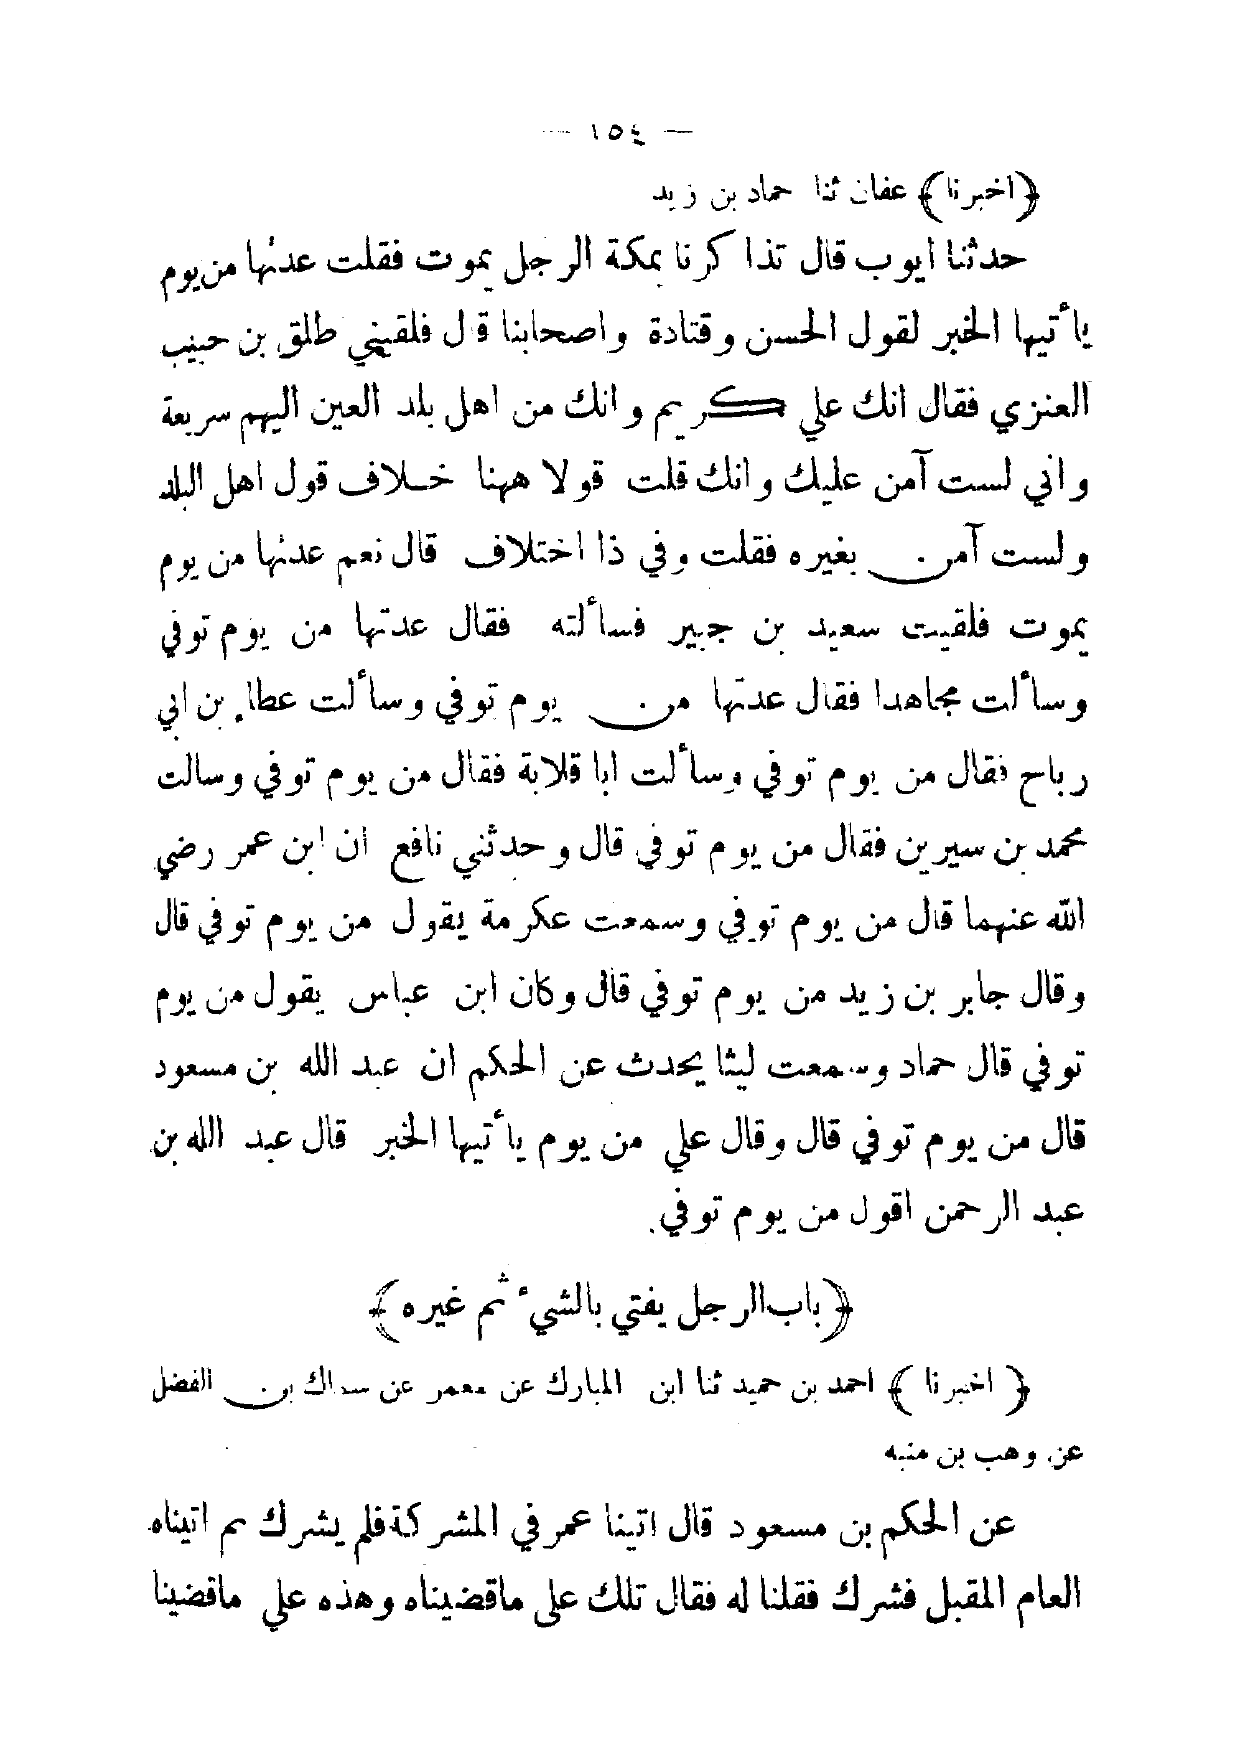 — ١٥٤ —
﴿اخبرنا﴾ عفان ثنا حماد بن زيد
حدثنا ايوب قال تذاكرنا بمكة الرجل يموت فقلت عدتها من يوم
يأتيها الخبر لقول الحسن وقتادة واصحابنا قال فلقيني طلق بن حبيب
العنزي فقال انك علي كريم وانك من اهل بلد العين اليهم سريعة
واني لست آمن عليك وانك قلت قولا ههنا خلاف قول اهل البلد
ولست آمن بغيره فقلت وفي ذا اختلاف قال نعم عدتها من يوم
يموت فلقيت سعيد بن جبير فسألته فقال عدتها من يوم توفي
وسألت مجاهدا فقال عدتها من يوم توفي وسألت عطاء بن ابي
رباح فقال من يوم توفي وسألت ابا قلابة فقال من يوم توفي وسالت
محمد بن سيرين فقال من يوم توفي قال وحدثني نافع ان ابن عمر رضي
الله عنهما قال من يوم توفي وسمعت عكرمة يقول من يوم توفي قال
وقال جابر بن زيد من يوم توفي قال وكان ابن عباس يقول من يوم
توفي قال حماد وسمعت ليثا يحدث عن الحكم ان عبد الله بن مسعود
قال من يوم توفي قال وقال علي من يوم يأتيها الخبر قال عبد الله بن
عبد الرحمن اقول من يوم توفي.
﴿باب الرجل يفتي بالشيء ثم غيره﴾
﴿ اخبرنا ﴾ احمد بن حميد ثنا ابن المبارك عن معمر عن سماك بن الفضل
عن وهب بن منبه
عن الحكم بن مسعود قال اتينا عمر في المشركة فلم يشرك ثم اتيناه
العام المقبل فشرك فقلنا له فقال تلك على ماقضيناه وهذه علي ماقضينا